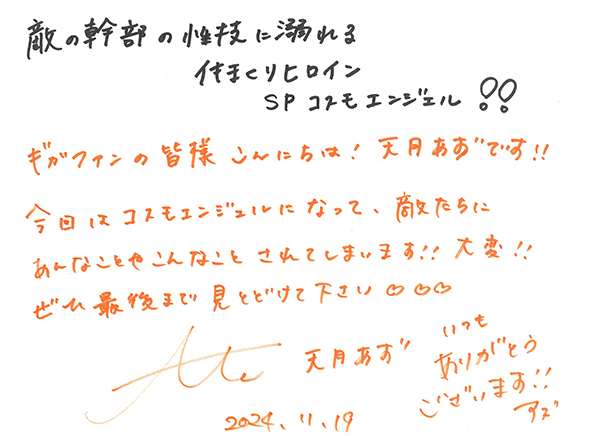 敵の幹部の性技に溺れる
イキまくりヒロイン
SPコスモエンジェル!!
ギガファンの皆様 こんにちは! 天月あずです!!
今回はコスモエンジェルになって、敵たちに
あんなことやこんなこと されてしまいます!! 大変!!
ぜひ最後まで見とどけて下さい♡♡♡
天月あず
いつも
ありがとう
ございます!!
アズ
2024.11.19